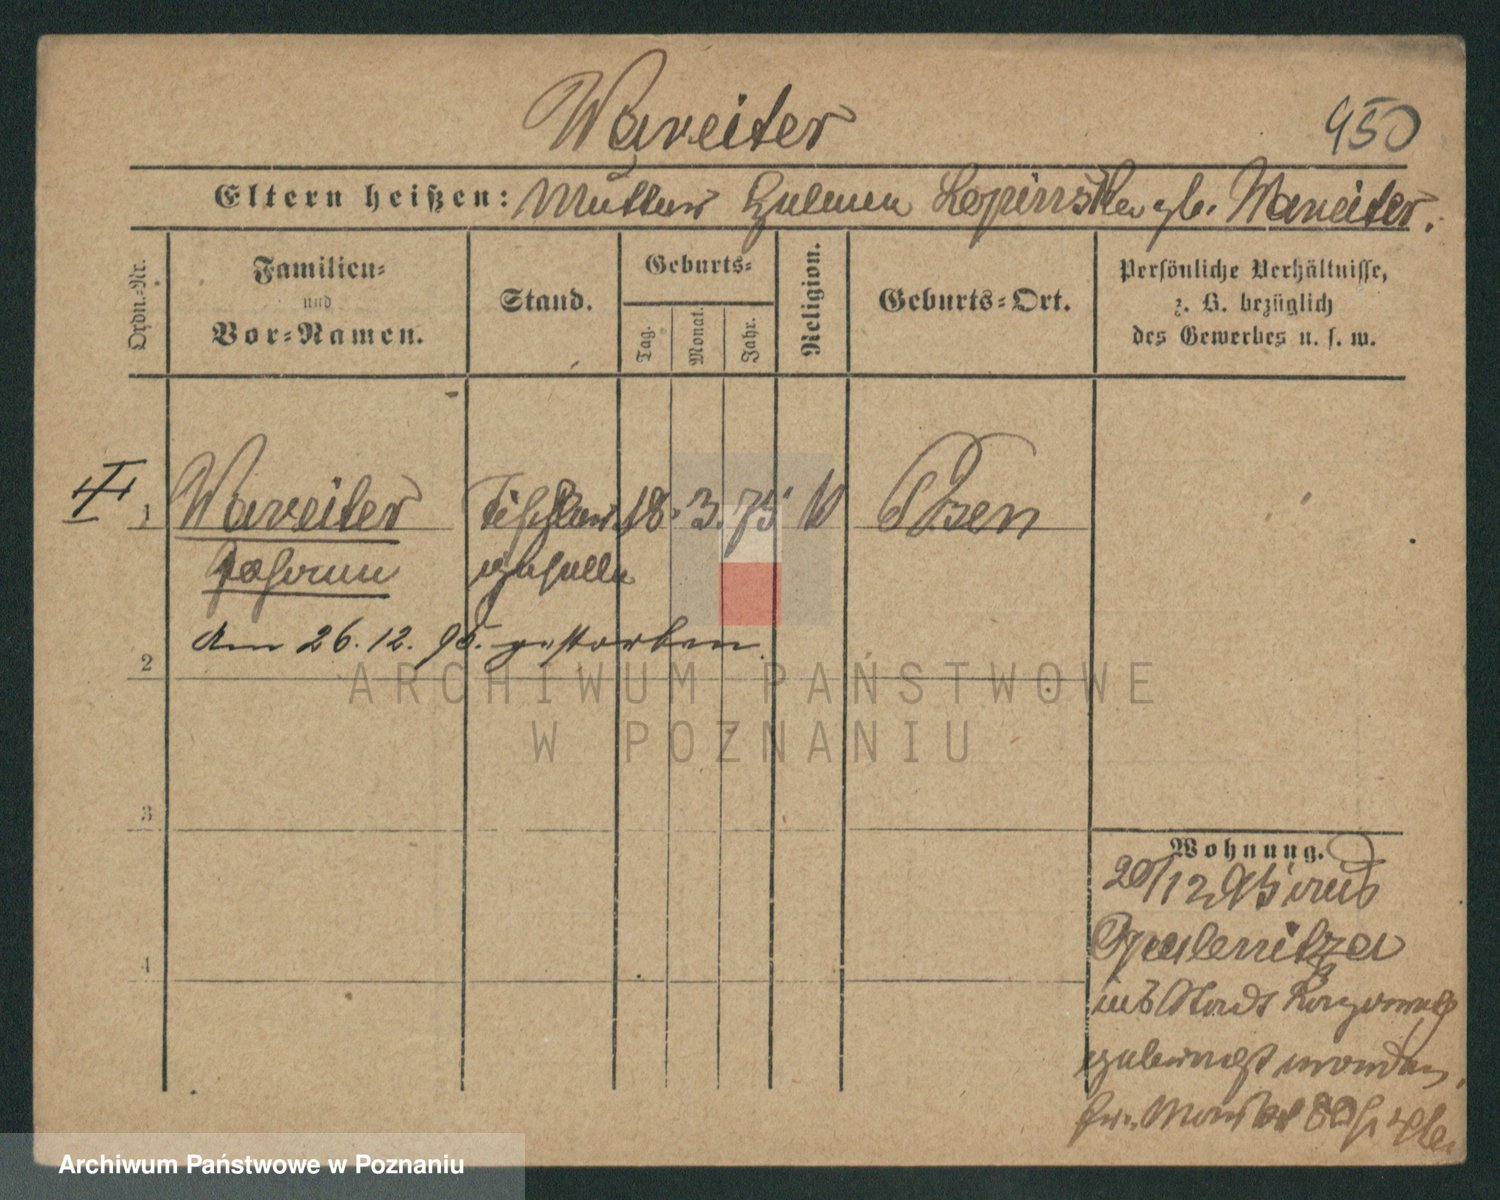 Wareiter
950
Eltern heißen: Mutter Lopinska gb. Wareiter.
Ordn.-Nr.
Familien-
und
Vor-Namen.
Stand.
Geburts-
Tag.
Monat.
Jahr.
Religion.
Geburts-Ort.
Persönliche Verhältnisse,
z. B. bezüglich
des Gewerbes u. s. w.
1 Wareiter Tischler 18. 3. 75 Posen
Johann geselle
am 26. 12. 95. gestorben.
2
3
4
Wohnung.
20/12 95 aus
ins Stadt
gebracht worden,
ARCHIWUM PAŃSTWOWE
W POZNANIU
Archiwum Państwowe w Poznaniu